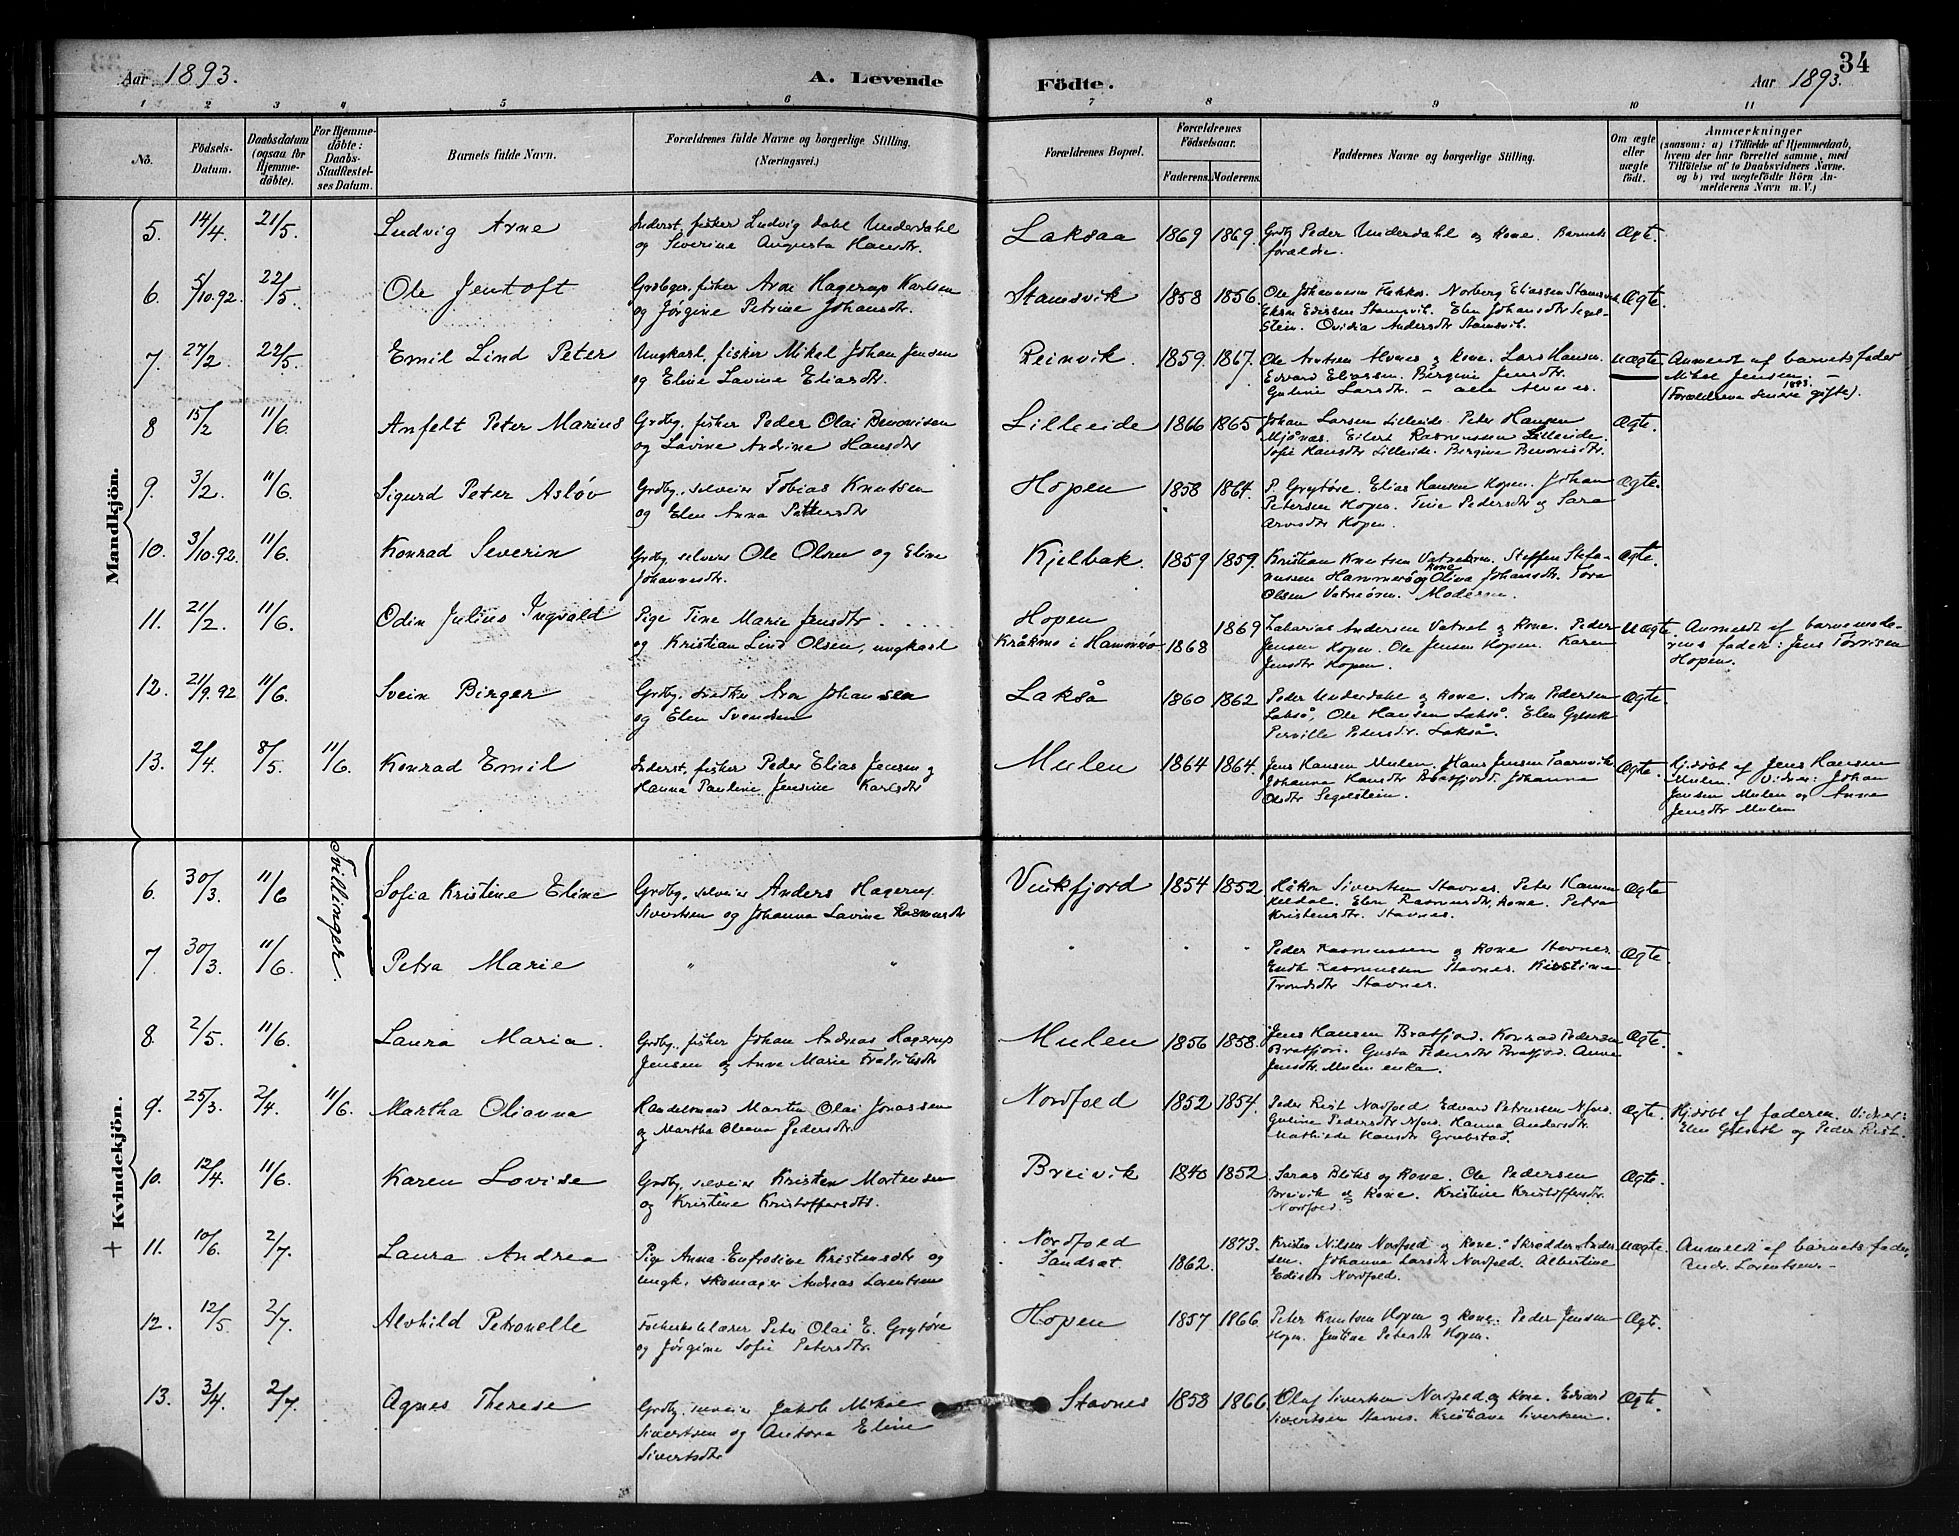 34
Aar 1893. A. Levende Födte. Aar 1893.
1 2 3 4 5 6 7 8 9 10 11
No. Födsels-Datum. Daabsdatum (ogsaa for Hjemme-döbte). For Hjemme-döbte: Daabs-Stadfæstel-ses Datum. Barnets fulde Navn. Forældrenes fulde Navne og borgerlige Stilling. (Næringsvei.) Forældrenes Bopæl. Forældrenes Födselsaar. Faderens. Moderens. Faddernes Navne og borgerlige Stilling. Om ægte eller uægte födt. Anmærkninger (saasom: a) i Tilfælde af Hjemmedaab, hvem der har forrettet samme, med Tilföielse af to Daabsvidners Navne. og b) ved uægtefödte Börn An-melderens Navn m. V.)
Mandkjön.
5. 14/4. 21/5. Ludvig Arne Inderst, fisker Ludvig Dahl Underdahl Laksaa 1869 1869. Grdby Peder Underdahl og kone. Barnets Ægte.
og Severine Augusta Hansdtr. forældre.
6. 5/10.92. 22/5. Ole Jentoft Grdbger, fisker Arne Hagerup Karlsen Stamsvik 1858 1856. Ole Johannesen Norberg Eliassen Stamsvik Ægte.
og Jørgine Petrine Johansdtr. Edissen Stamsvik. Elen Johansdtr Segel-
stein. Ovidia Andersdtr Stamsvik.
7. 27/2. 22/5. Emil Lind Peter Ungkarl, fisker Mikal Johan Jensen Reinvik. 1859. 1867. Ole Alvnes og kone. Lars Hansen. uægte Anmeldt af barnets fader
og Eline Lavine Eliasdtr. Edvard Eliassen. Bergine Jensdtr. Mikal Jensen. –
Guline Larsdtr. – alle Alvnes. (Forældrene senere 1893. gifte).
8 15/2 11/6. Anfelt Peter Marius Grdby, fisker Peder Olai Benonisen Lilleeide 1866 1865 Johan Larsen Lilleeide. Peter Hansen Ægte.
og Lavine Andrine Hansdtr Mjönæs. Eilert Rasmussen Lilleeide.
Sofie Hansdtr Lilleeide. Bergine Benonisdtr.
9. 3/2. 11/6. Sigurd Peter Asløv Grdby, selveier Tobias Knutsen Hopen 1858 1864. P. Grytöre. Elias Hansen Hopen. Johan Ægte.
og Elen Anna Pettersdtr Petersen Hopen. Tine Pedersdtr og Sara
Arnsdtr Hopen.
10. 3/10.92. 11/6. Konrad Severin Grdby selveier Ole Olsen og Eline Kjelbak. 1859 1859. Kristian Knutsen Vatneören. Steffen Stefa- Ægte.
Johannesdtr. nussen Hammerö og kone Oliva Johansdtr. Tore
Olsen Vatneören. Moderen.
11. 21/2. 11/6. Odin Julius Ingvald Pige Tine Marie Jensdtr. Hopen 1869 Zakarias Andersen Vatnet og kone. Peder Uægte. Anmeldt af barnemode-
og Kristian Lind Olsen, ungkarl Kråkmo i Hammerö 1868 Jensen Hopen. Ole Jensen Hopen. Karen rens fader: Jens Törrisen
Jensdtr Hopen. Hopen.
12. 21/9.92 11/6. Svein Birger Grdby, snedker Arn Johansen Lakså 1860 1862 Peder Underdahl og kone. Arn Pedersen Ægte.
og Elen Svendsen Lakså, Ole Hansen Lakså. Elen
Pernille Pedersdtr. Lakså.
13. 2/4. 8/5. 11/6. Konrad Emil Inderst, fisker Peder Elias Jensen og Mulen 1864 1864. Jens Hansen Mulen. Hans Jensen Taarnvik Ægte. Hjdöbt af Jens Hansen
Hanna Pauline Jensine Karlsdtr Johanna Hansdtr Bratfjord. Johanna Mulen. Vidner: Johan
Olsdtr Segelstein. Jensen Mulen og Anna
Jensdtr Mulen
Kvindekjön.
Tvillinger.
6. 30/3. 11/6 Sofia Kristine Eline Grdby, selveier Anders Hagerup Vinkfjord 1854 1852 Håkon Sivertsen Stavnes. Peter Hansen Ægte
Sivertsen og Johanna Lavine Rasmusdtr Heldal. Elen Rasmusdtr, kone. Petra
Kristensdtr. Stavnes.
7. 30/3. 11/6. Petra Marie " " " " " Peder Rasmussen og kone Stavnes. Ægte.
Rasmussen Stavnes. Kirstine
Trondsdtr Stavnes.
8. 2/5. 11/6. Laura Maria. Grdby, fisker Johan Andreas Hagerup Mulen 1856 1858. Jens Hansen Bratfjord. Konrad Pedersen Ægte.
Jensen og Anne Marie Fredriksdtr Bratfjord. Gusta Pedersdtr Bratfjord. Anna
Jensdtr. Mulen enke.
9. 25/3. 2/4. 11/6. Martha Olianna Handelsmand Martin Olai Jonassen Nordfold 1852 1854. Peder Rist Nordfold Edvard Petersen Nfold. Ægte. Hjdöbt af faderen. Vidner:
og Martha Oleana Pedersdtr. Guline Pedersdtr Nfold. Hanna Andersdtr. Elen og Peder Rist.
Mathilde Hansdtr Grubstad.
10. 12/4. 11/6. Karen Lovise Grdby, selveier Kristen Mortensen Breivik 1840 1852 og kone. Ole Pedersen Ægte.
og Kristine Kristoffersdtr. Breivik og kone. Kristine Kristoffersdtr.
Nordfold.
+ 11. 10/6. 2/7. Laura Andrea Pige Anna Eufrosine Kristensdtr og Nordfold 1873. Kristen Nilsen Nordfold og kone. Skrædder Ander- uægte. Anmeldt af barnets fader,
ungk. skomager Andreas Lorentsen Sandsæt. 1862. sen. Johanna Larsdtr Nordfold. Albertine Andr. Lorentsen. –
Edisdtr Nordfold.
12. 12/5. 2/7. Alvhild Petronelle Folkeskolelærer Peter Olai E. Grytöre Hopen 1857 1866. Peter Knutsen Hopen og kone. Peder Jensen Ægte.
og Jørgine Sofie Petersdtr. Hopen. Jentine Petersdtr Hopen.
13. 3/4. 2/7. Agnes Therese Grdby, selveier Jakob Mikal Stavnes 1858 1866 Olaf Sivertsen Nordfold og kone. Edvard Ægte.
Sivertsen og Antona Eline Sivertsen Stavnes. Kristiane Sivertsen.
Sivertsdtr